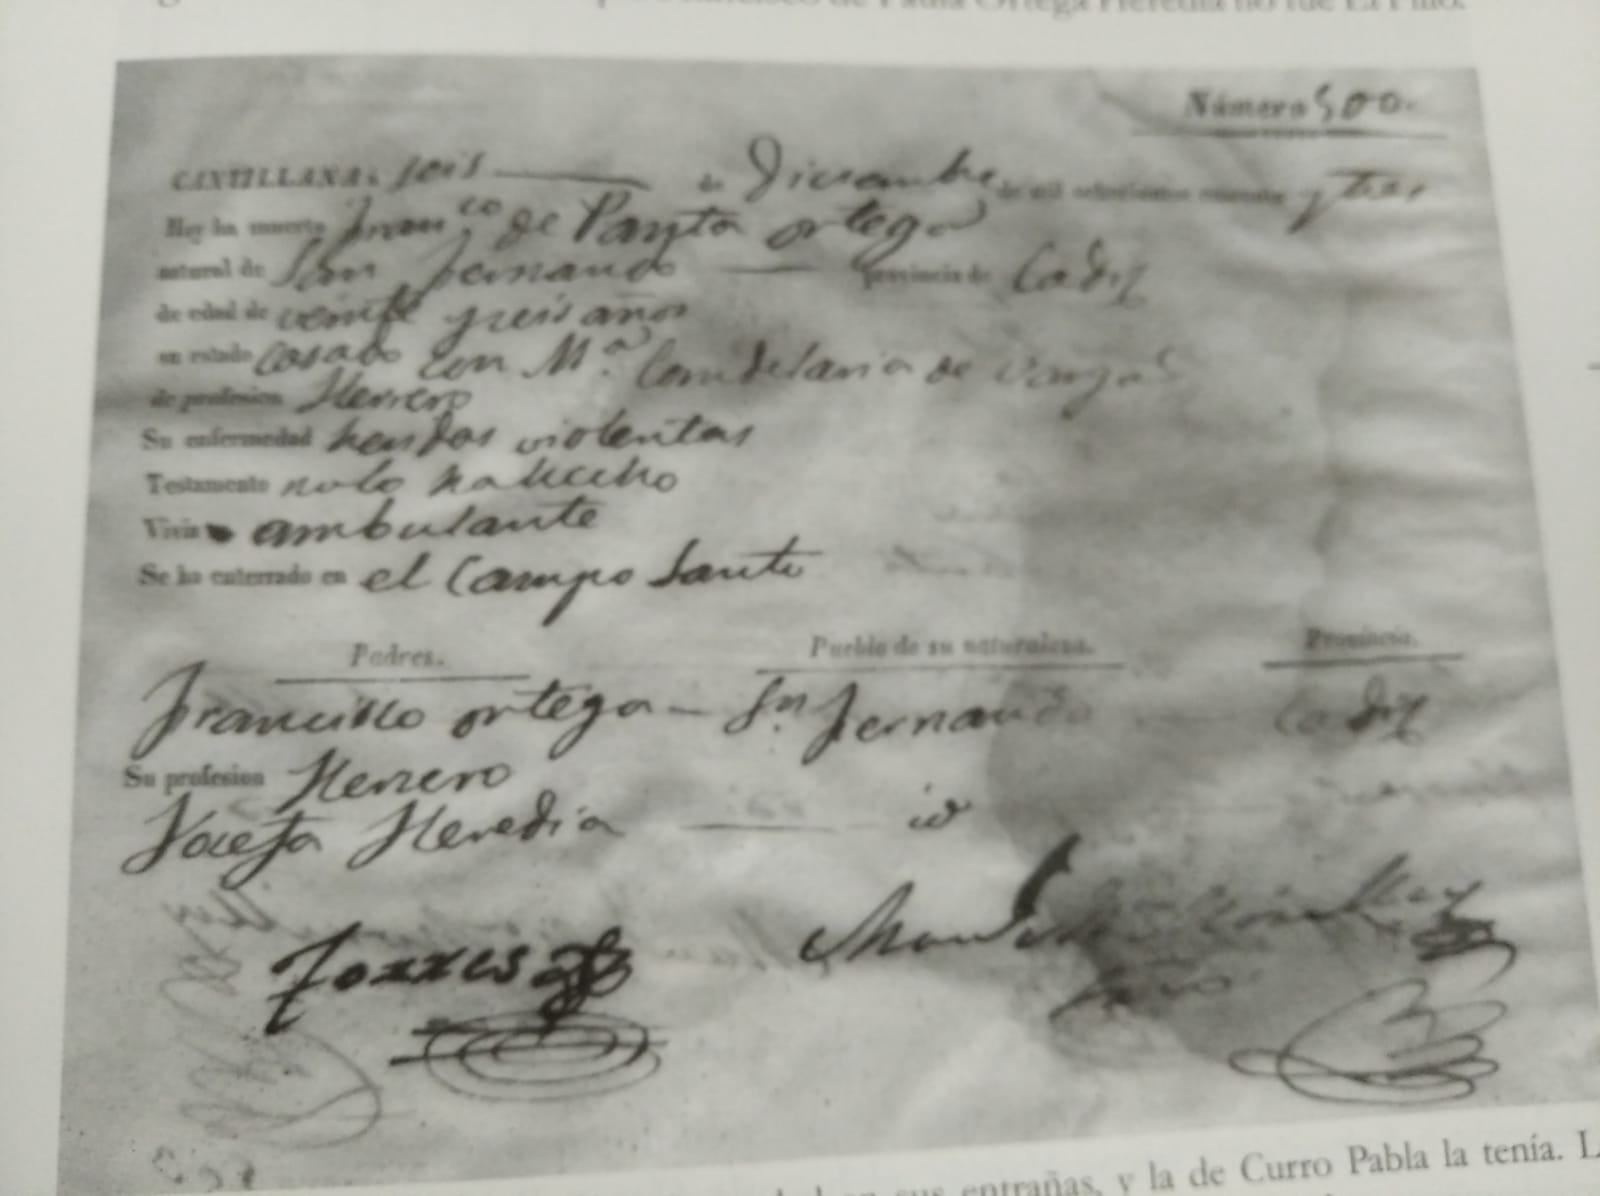 de Paula Ortega Heredia no fue El Fillo.
Número 500.
CANTILLANA: seis de Diciembre de mil ochocientos cuarenta y tres
Hoy ha muerto Franco de Paula Ortega
natural de San Fernando provincia de Cadiz
de edad de veinte y seis años
su estado casado con Mª. Candelaria de Vargas
de profesion Herrero
Su enfermedad heridas violentas
Testamento no lo ha hecho
Vivia ambulante
Se ha enterrado en el Campo Santo
Padres. Pueblo de su naturaleza. Provincia.
Francisco Ortega - Sn. Fernando Cadiz
Su profesion Herrero
Josefa Heredia id
Torres
en sus entrañas, y la de Curro Pabla la tenía. L